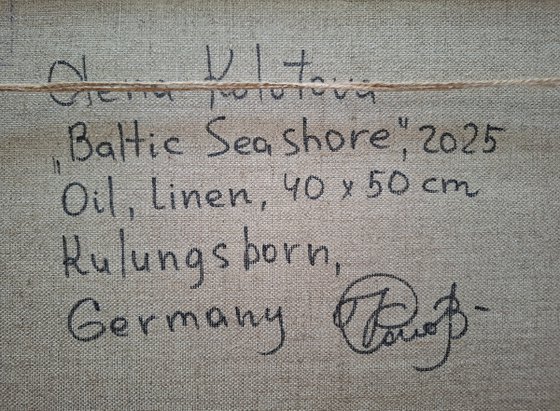 Olena Kolotova
„Baltic Seashore", 2025
Oil, linen, 40 x 50 cm
Kulungsborn,
Germany